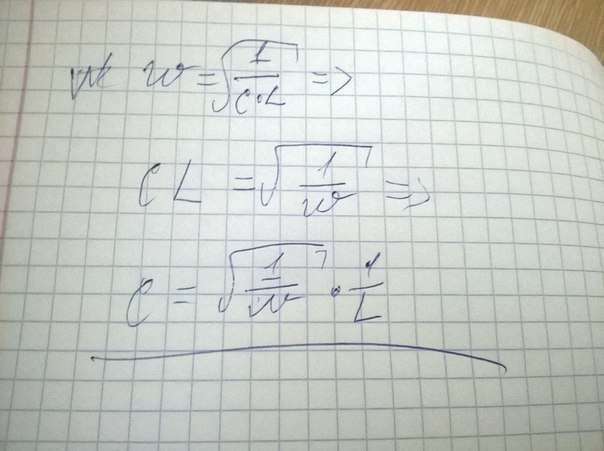 тк w = √(1/(C·L)) =>
CL = √(1/w) =>
C = √(1/w) · 1/L